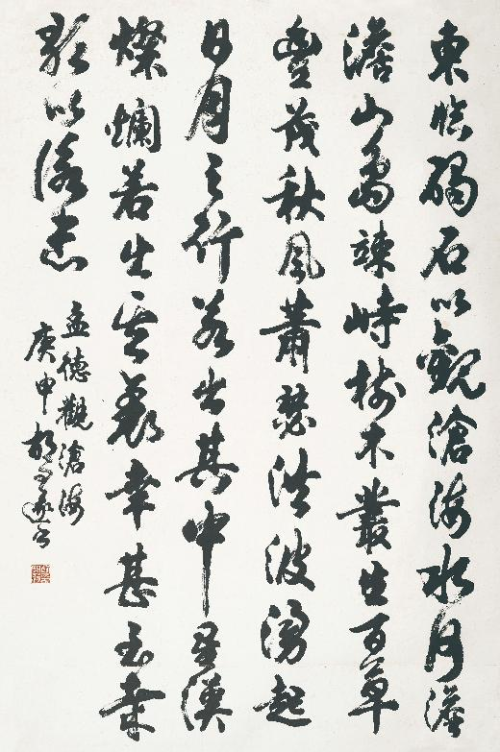 東臨碣石以觀滄海水何澹
澹山島竦峙樹木叢生百草
豐茂秋風蕭瑟洪波湧起
日月之行若出其中星漢
燦爛若出其裏幸甚至哉
歌以詠志
孟德觀滄海
庚申胡問遂書